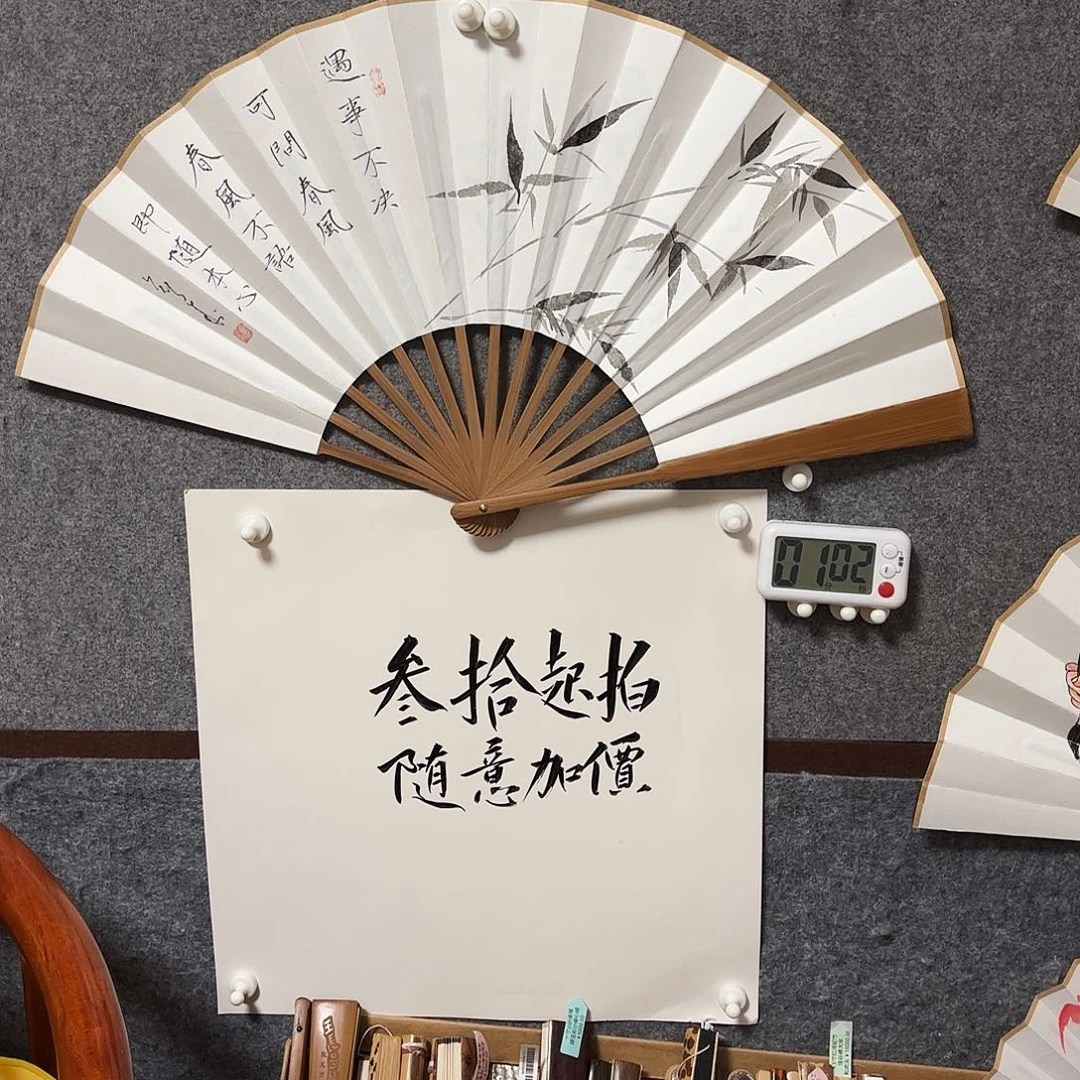 遇事不决
可問春風
春風不語
即随本心
01 02
分
秒
叁拾起拍
随意加價